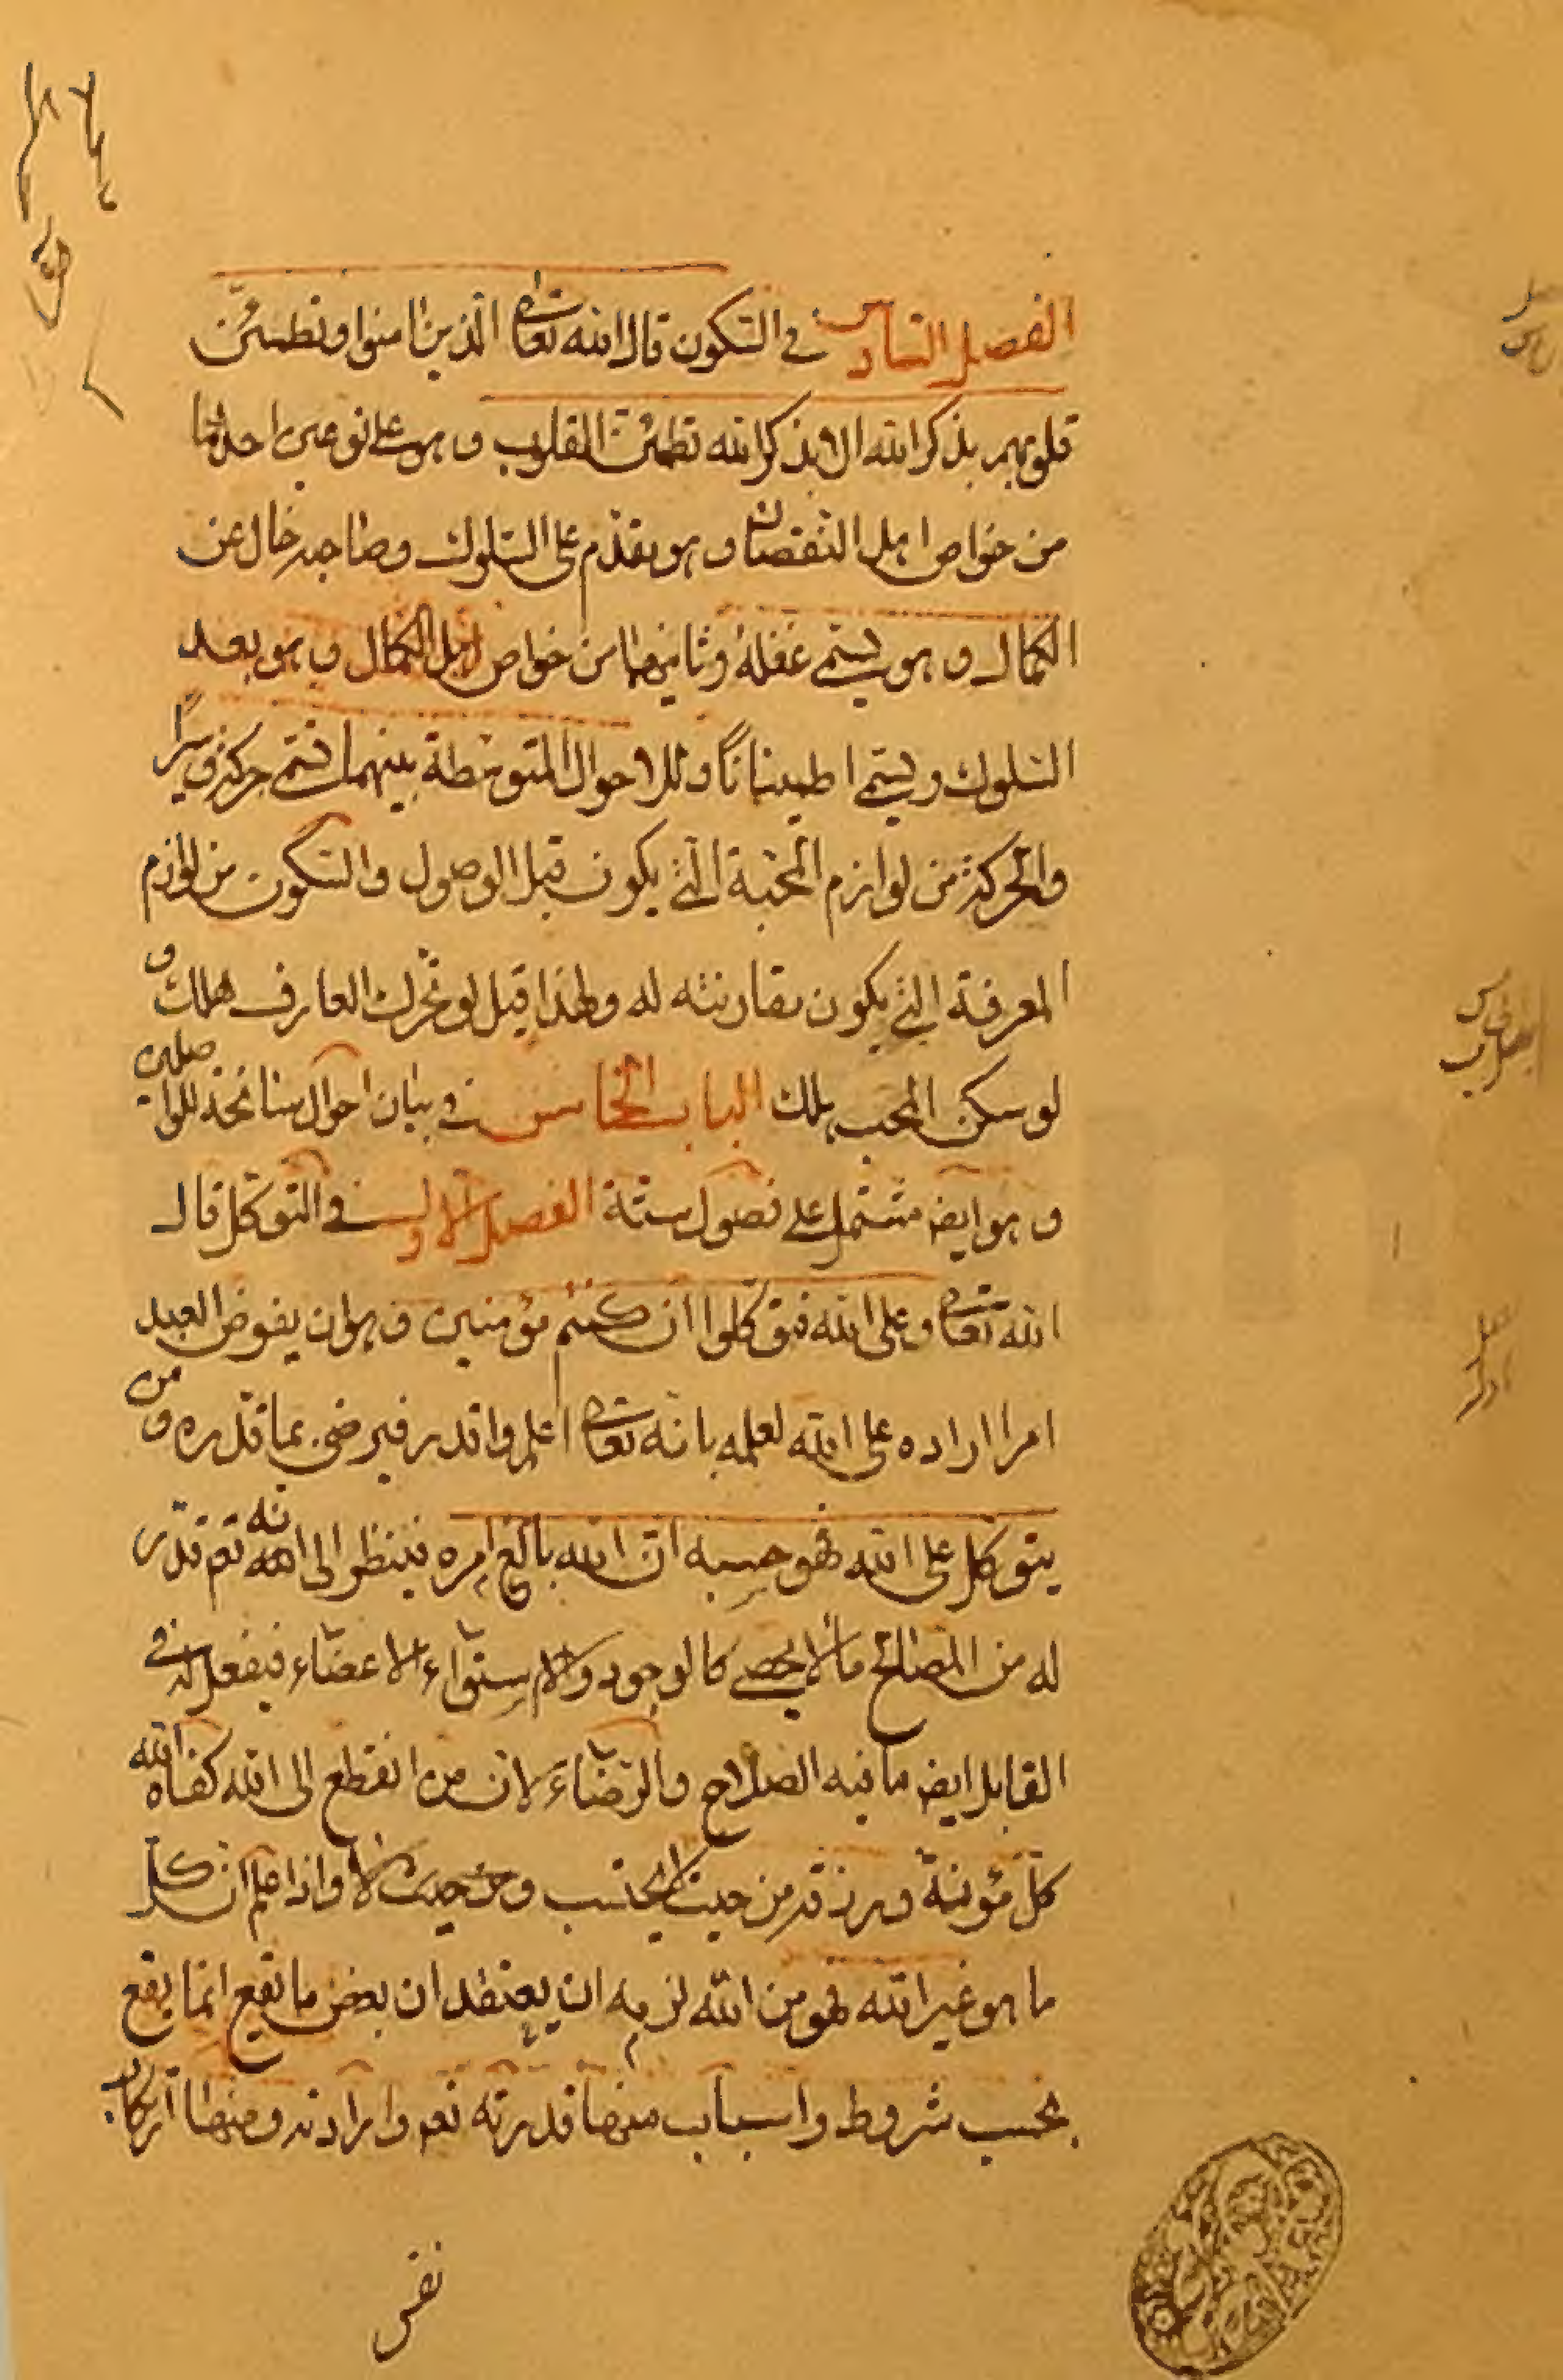 الفصل السادس في السكون قال الله تعالى الذين امنوا وتطمئن
قلوبهم بذكر الله الا بذكر الله تطمئن القلوب وهو على نوعين احدهما
من خواص اهل النقصان وهو يقدم على السلوك وصاحبه خال عن
الكمال وهو يسمى غفلة وثانيهما من خواص اهل الكمال وهو بعد
السلوك ويسمى اطمينانا وللاحوال المتوسطة بينهما تسمى حركة وسيرا
والحركة من لوازم المحبة التي يكون قبل الوصول والسكون من لوازم
المعرفة التي يكون مقارنته له ولهذا قيل لو تحرك العارف هلك و
لو سكن المحب هلك الباب الخامس في بيان احوال سانحة للواصلين
وهو ايضه مشتمل على فصول ستة الفصل الاول في التوكل قال
الله تعالى وعلى الله فتوكلوا ان كنتم مؤمنين وهو ان يفوض العبد
امرا اراده على الله لعلمه بانه تعالى اعلم واقدر فيرضى بما قدره ومن
يتوكل على الله فهو حسبه ان الله بالغ امره فينظر الى انه تعم قدر
له من المصالح ما لا يحصى كالوجود والاستواء الاعضاء فيفعل في
القابل ايضه ما فيه الصلاح والرضاء لان من انقطع الى الله كفاه الله
كل مؤنة ورزقه من حيث لا يحتسب ومن حيث لا واذا علم ان كل
ما هو غير الله فهو من الله لزمه ان يعتقد ان بعض ما يقع انما يقع
بحسب شروط واسباب منها قدرته تعم وارادته ومنها اركان
نفس